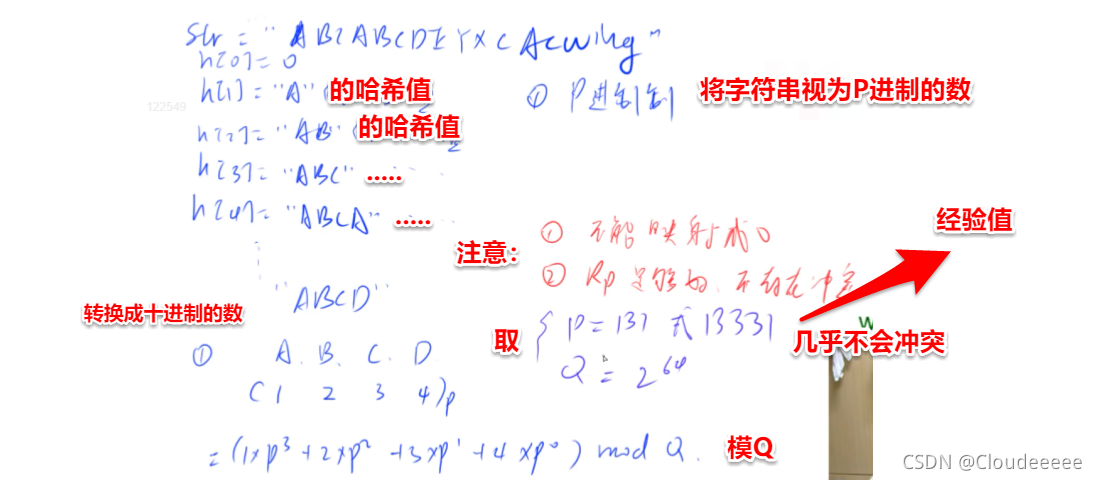 Str = "ABCABCDEYXCAcwing"
h[0] = 0
h[1] = "A" 的哈希值
① P进制 将字符串视为P进制的数
122549
h[2] = "AB" 的哈希值
h[3] = "ABC" .....
h[4] = "ABCA" .....
经验值
注意:
① 不能映射成0
② Rp足够好,不存在冲突
"ABCD"
转换成十进制的数
取 { P = 131 或 13331
几乎不会冲突
Q = 2^64
① A. B. C. D
(1 2 3 4)p
= (1×p^3 + 2×p^2 + 3×p^1 + 4×p^0) mod Q. 模Q
CSDN @Cloudeeeee